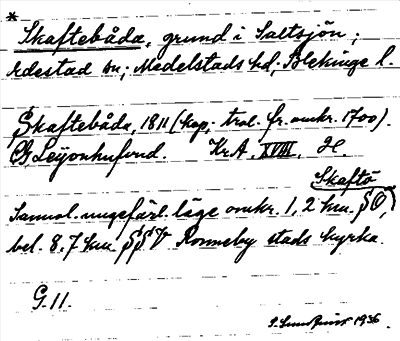 *
Skaftebåda, grund i Saltsjön;
Edestad sn; Medelstads hd; Blekinge l.
Skaftebåda, 1811 (kop. trol. fr. omkr. 1700).
CG Leijonhufvud. Kr.A. XVIII. H.
Skaftö
Samml. ungefärl. läge omkr. 1,2 km. SO,
bel. 8.7 km. SSV Ronneby stads kyrka.
G. 11.
1936.